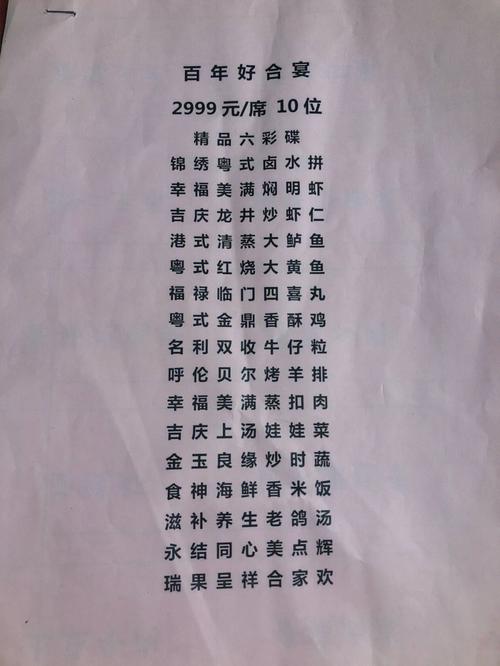 百年好合宴
2999元/席 10位
精品六彩碟
锦绣粤式卤水拼
幸福美满焖明虾
吉庆龙井炒虾仁
港式清蒸大鲈鱼
粤式红烧大黄鱼
福禄临门四喜丸
粤式金鼎香酥鸡
名利双收牛仔粒
呼伦贝尔烤羊排
幸福美满蒸扣肉
吉庆上汤娃娃菜
金玉良缘炒时蔬
食神海鲜香米饭
滋补养生老鸽汤
永结同心美点辉
瑞果呈祥合家欢